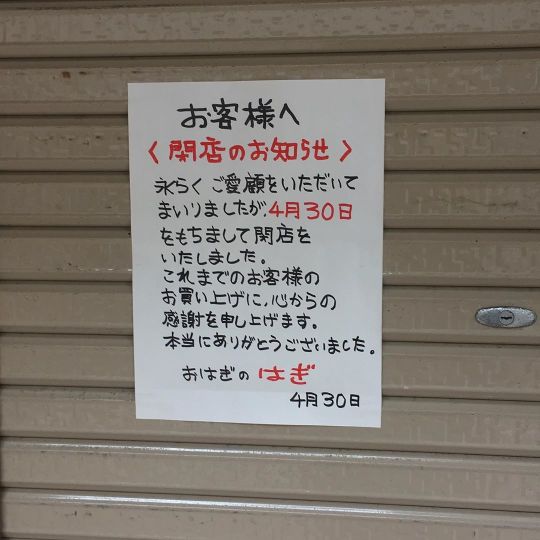 お客様へ
〈閉店のお知らせ〉
永らくご愛顧をいただいて
まいりましたが、4月30日
をもちまして閉店を
いたしました。
これまでのお客様の
お買い上げに、心からの
感謝を申し上げます。
本当にありがとうございました。
おはぎの はぎ
4月30日